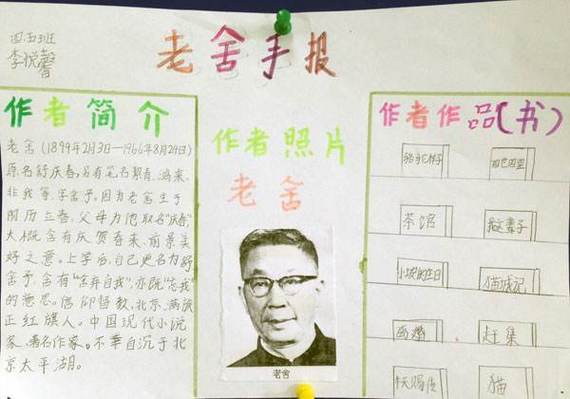 四五班
李悦馨
老舍手报
作者简介
老舍(1899年2月3日—1966年8月24日)
原名舒庆春,另有笔名絜青、鸿来、
非我等,字舍予。因为老舍生于
阴历立春,父母为他取名“庆春”,
大概含有庆贺春来、前景美
好之意。上学后,自己更名为舒
舍予,含有“舍弃自我”,亦既“忘我”
的意思。信仰基教,北京、满族
正红旗人。中国现代小说
家、著名作家。不幸自沉于北
京太平湖。
作者照片
老舍
老舍
作者作品(书)
骆驼祥子
四世同堂
茶馆
我这辈子
小坡的生日
猫城记
离婚
赶集
猫